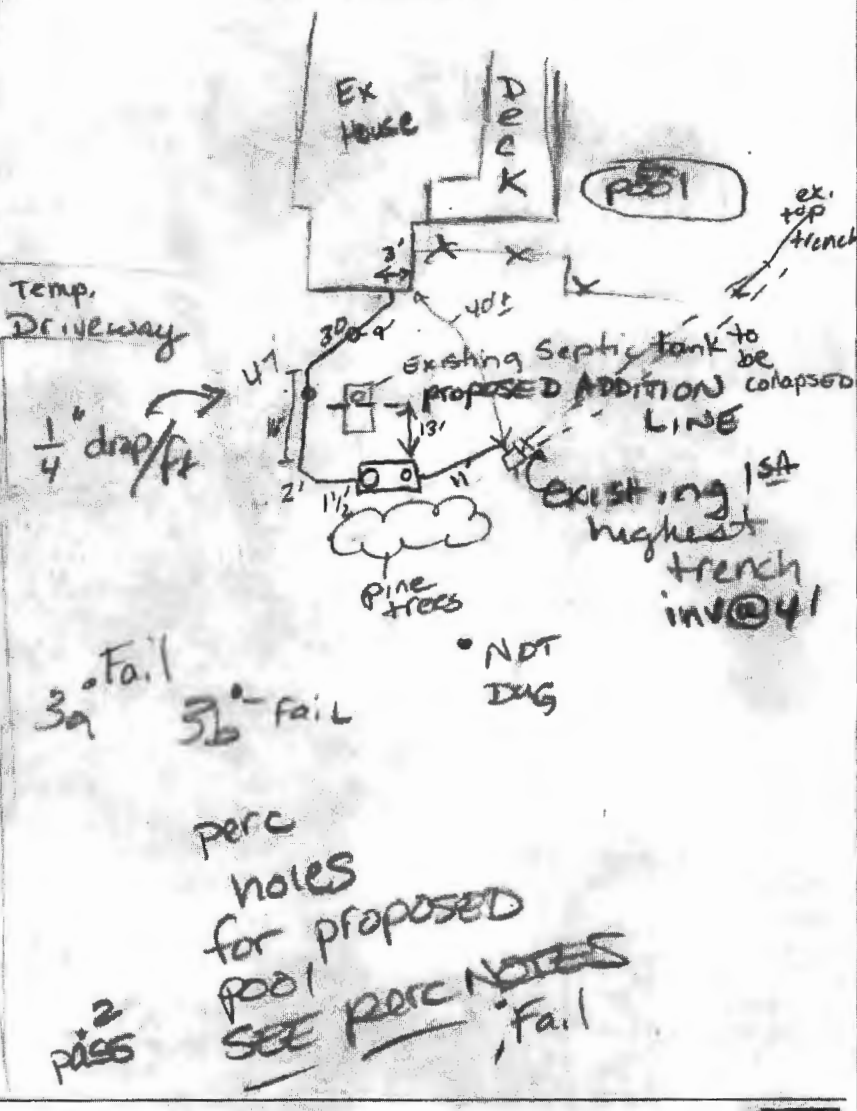 Ex
House
Deck
Ex
pool
ex.
top
trench
3'
Temp.
Driveway
40'±
47
Existing Septic tank to
be
colapsed
PROPOSED ADDITION
LINE
1/4" drop/ft
13'
2'
1 1/2'
11'
existing 1st
highest
trench
inv@41
pine
trees
NOT
DUG
Fail
3a
3b - FaiL
perc
holes
for proposed
pool
SEE perc NOTES
2
pass
Fail